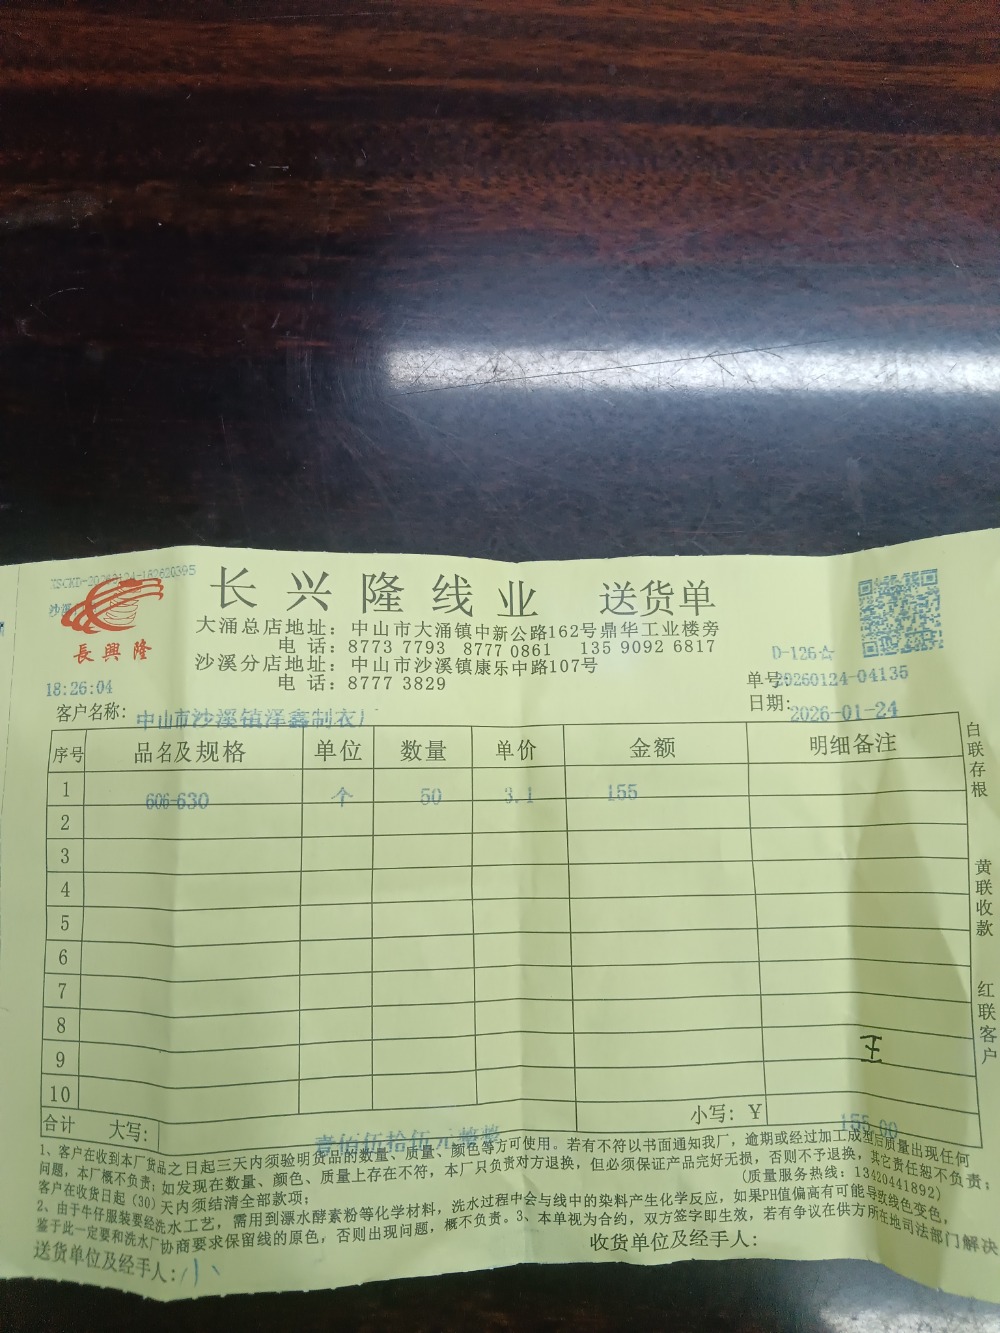 长兴隆线业 送货单
大涌总店地址：中山市大涌镇中新公路162号鼎华工业楼旁
电 话：8773 7793 8777 0861 135 9092 6817
沙溪分店地址：中山市沙溪镇康乐中路107号
电 话：8777 3829
長興隆
沙溪
D-126☆
18:26:04
单号:20260124-04135
客户名称：中山市沙溪镇泽鑫制衣厂
日期:2026-01-24
序号 品名及规格 单位 数量 单价 金额 明细备注
1 606-630 个 50 3.1 155
2
3
4
5
6
7
8
9
10
王
合计 大写： 壹佰伍拾伍元整 小写：￥ 155.00
白联存根 黄联收款 红联客户
1、客户在收到本厂货品之日起三天内须验明货品的数量、质量、颜色等方可使用。若有不符以书面通知我厂，逾期或经过加工成型后质量出现任何
问题，本厂概不负责；如发现在数量、颜色、质量上存在不符，本厂只负责对方退换，但必须保证产品完好无损，否则不予退换，其它责任恕不负责；
客户在收货日起（30）天内须结清全部款项； (质量服务热线：13420441892)
2、由于牛仔服装要经洗水工艺，需用到漂水酵素粉等化学材料，洗水过程中会与线中的染料产生化学反应，如果PH值偏高有可能导致线色变色，
鉴于此一定要和洗水厂协商要求保留线的原色，否则出现问题，概不负责。3、本单视为合约，双方签字即生效，若有争议在供方所在地司法部门解决
送货单位及经手人： 收货单位及经手人：